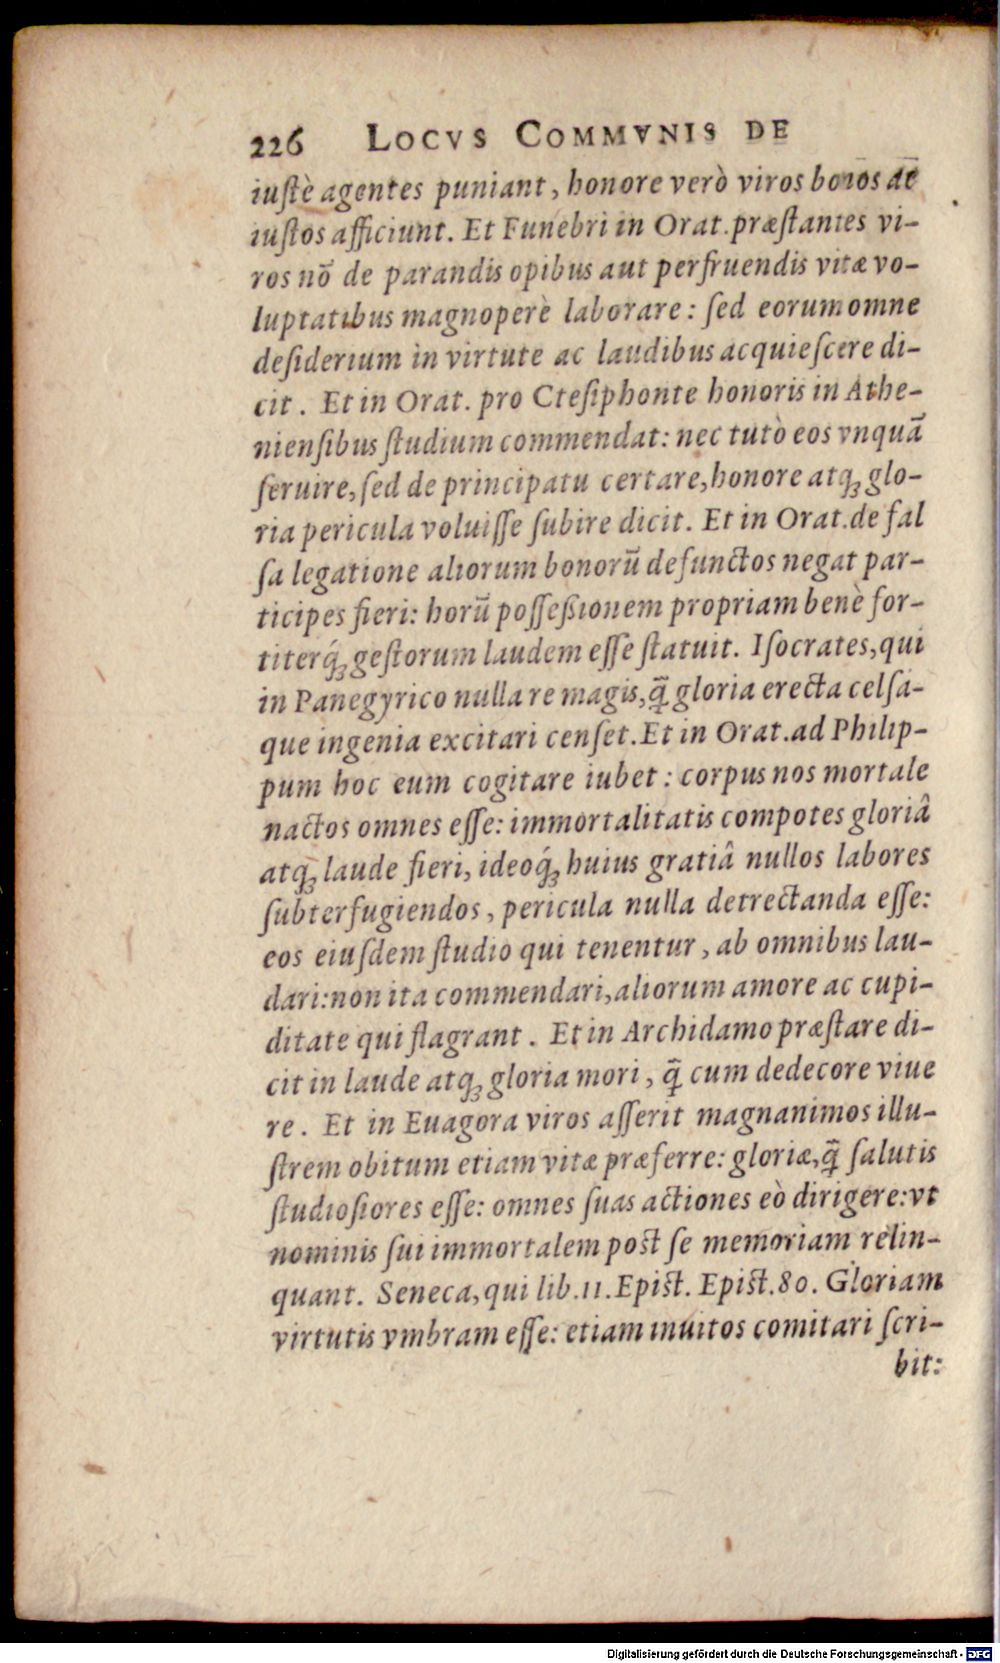 226 LOCVS COMMVNIS DE
iustè agentes puniant, honore verò viros bonos ac
iustos afficiunt. Et Funebri in Orat. præstantes vi-
ros nō de parandis opibus aut perfruendis vitæ vo-
luptatibus magnoperè laborare: sed eorum omne
desiderium in virtute ac laudibus acquiescere di-
cit. Et in Orat. pro Ctesiphonte honoris in Athe-
niensibus studium commendat: nec tutò eos vnquā
seruire, sed de principatu certare, honore atq; glo-
ria pericula voluisse subire dicit. Et in Orat. de fal
sa legatione aliorum bonorū defunctos negat par-
ticipes fieri: horū possessionem propriam benè for-
titerq́; gestorum laudem esse statuit. Isocrates, qui
in Panegyrico nulla re magis, q̄ gloria erecta celsa-
que ingenia excitari censet. Et in Orat. ad Philip-
pum hoc eum cogitare iubet: corpus nos mortale
nactos omnes esse: immortalitatis compotes gloriâ
atq; laude fieri, ideoq́; huius gratiâ nullos labores
subterfugiendos, pericula nulla detrectanda esse:
eos eiusdem studio qui tenentur, ab omnibus lau-
dari: non ita commendari, aliorum amore ac cupi-
ditate qui flagrant. Et in Archidamo præstare di-
cit in laude atq; gloria mori, q̄ cum dedecore viue
re. Et in Euagora viros asserit magnanimos illu-
strem obitum etiam vitæ præferre: gloriæ, q̄ salutis
studiosiores esse: omnes suas actiones eò dirigere: vt
nominis sui immortalem post se memoriam relin-
quant. Seneca, qui lib. 11. Epist. Epist. 80. Gloriam
virtutis vmbram esse: etiam inuitos comitari scri-
bit:
Digitalisierung gefördert durch die Deutsche Forschungsgemeinschaft - DFG